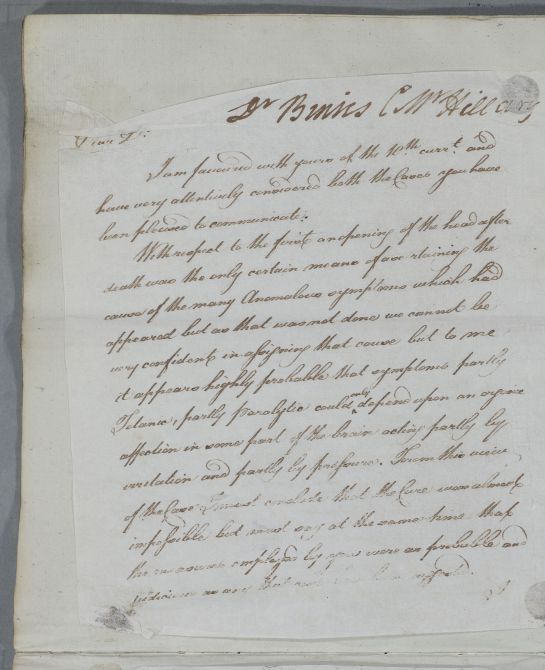 Dr Burns C Mr Hillary
Dear Dr:
I am favoured with yours of the 10th currt. and
have very attentively considered both the Cases you have
been pleased to communicate.
With respect to the first an opening of the head after
death was the only certain means of ascertaining the
cause of the many Anomalous symptoms which had
appeared but as that was not done we cannot be
very confident in assigning that cause but to me
it appears highly probable that symptoms partly
Tetanic, partly Paralytic could only depend upon an organic
affection in some part of the brain acting partly by
irritation and partly by pressure. From this view
of the Case I must conclude that the Cure was almost
impossible but must say at the same time that
the measures employed by you were as probable and
judicious as any that could have been